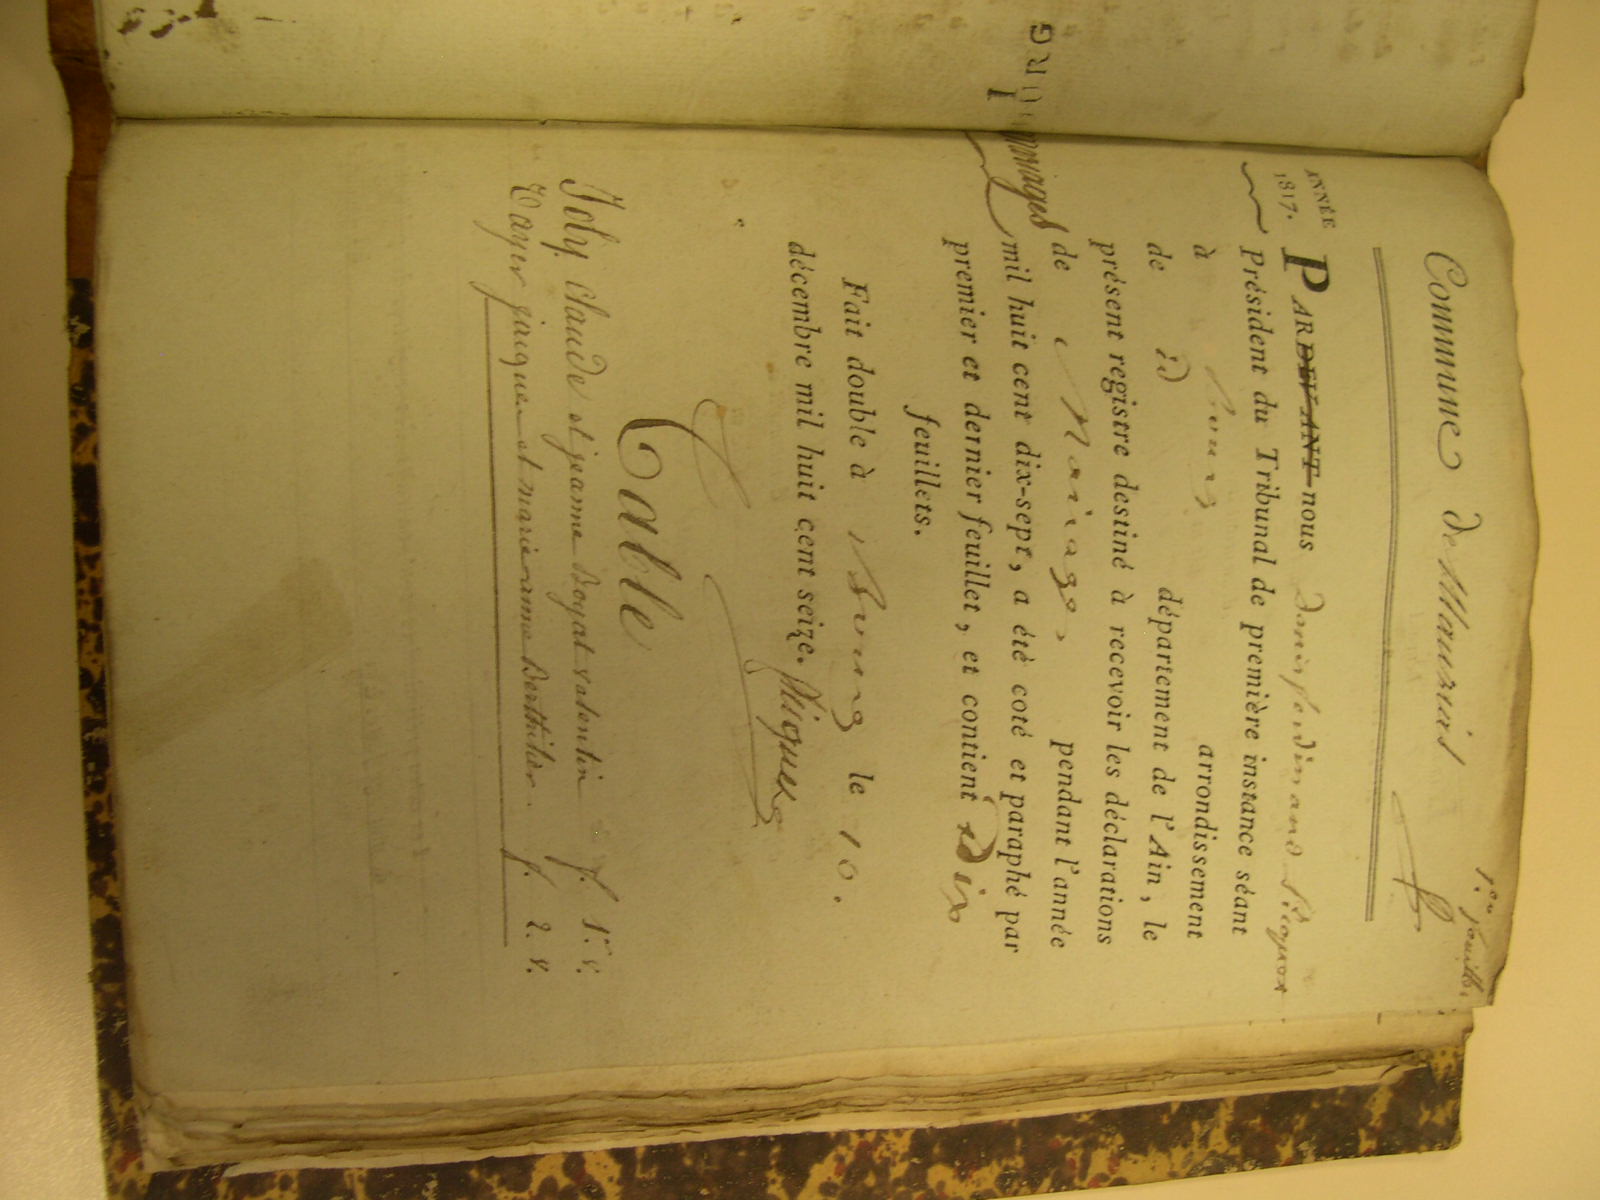 1.er feuillet
Commune de
ANNÉE
1817.
PARDEVANT nous denis ferdinand Picquet
Président du Tribunal de première instance séant
à Bourg arrondissement
de id département de l'Ain, le
présent registre destiné à recevoir les déclarations
de Mariages pendant l'année
mil huit cent dix-sept, a été coté et paraphé par
premier et dernier feuillet, et contient Dix
feuillets.
Fait double à Bourg le 10.
décembre mil huit cent seize. Picquet
Table
Joly claude et jeanne Boyat valentin f. 1.er v.
jacques et marie anne Berthelier. f. 2. v.